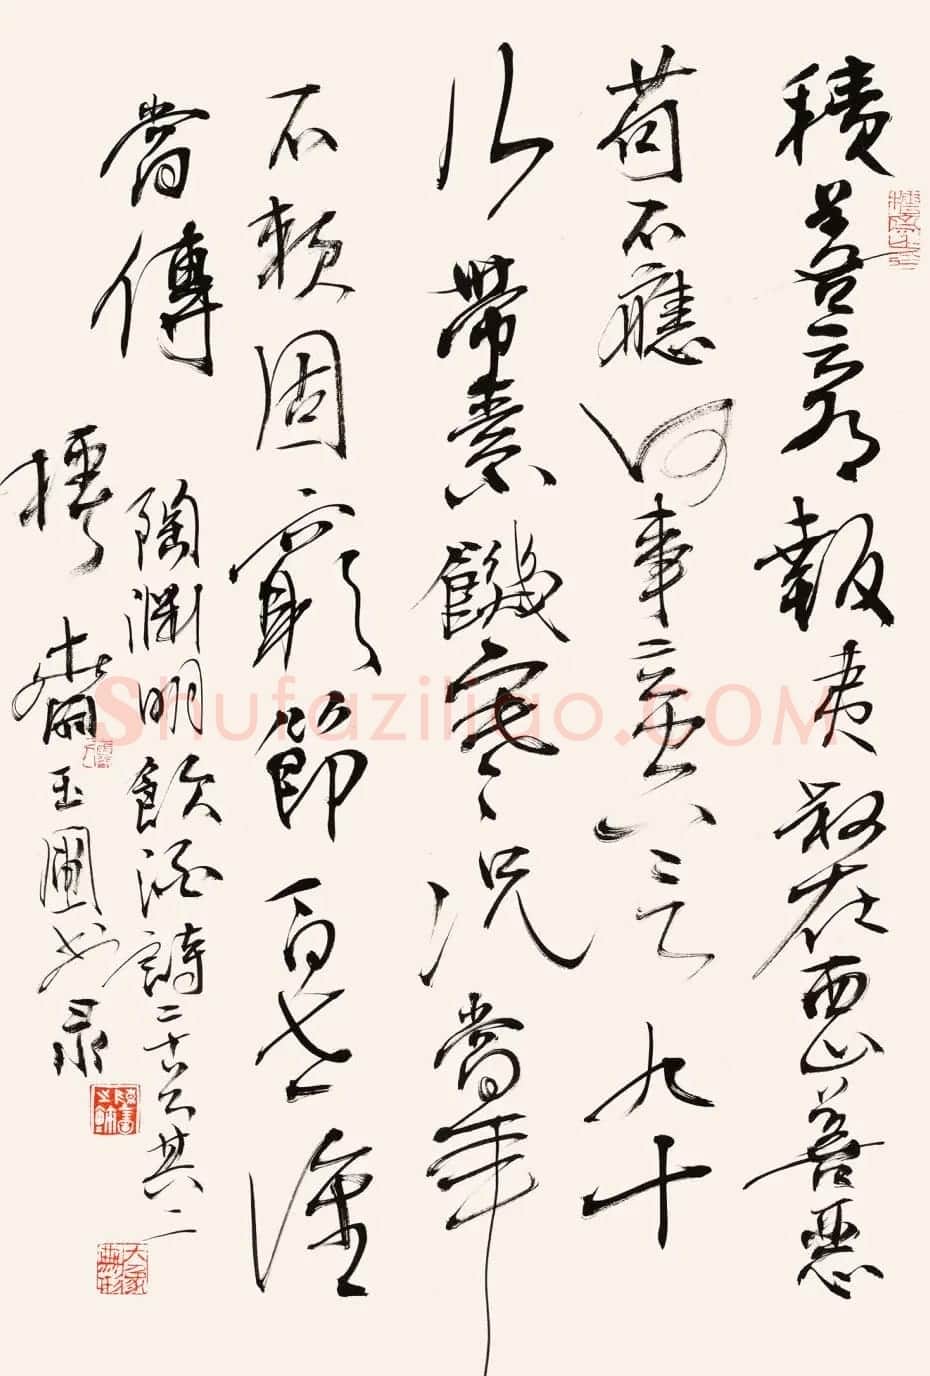 積善云有報夷叔在西山善惡
苟不應何事立空言九十
行帶索饑寒況當年
不賴固窮節百世誰
當傳
陶淵明飲酒詩二十首其二
錄
大象無形
Shufaziliao.COM